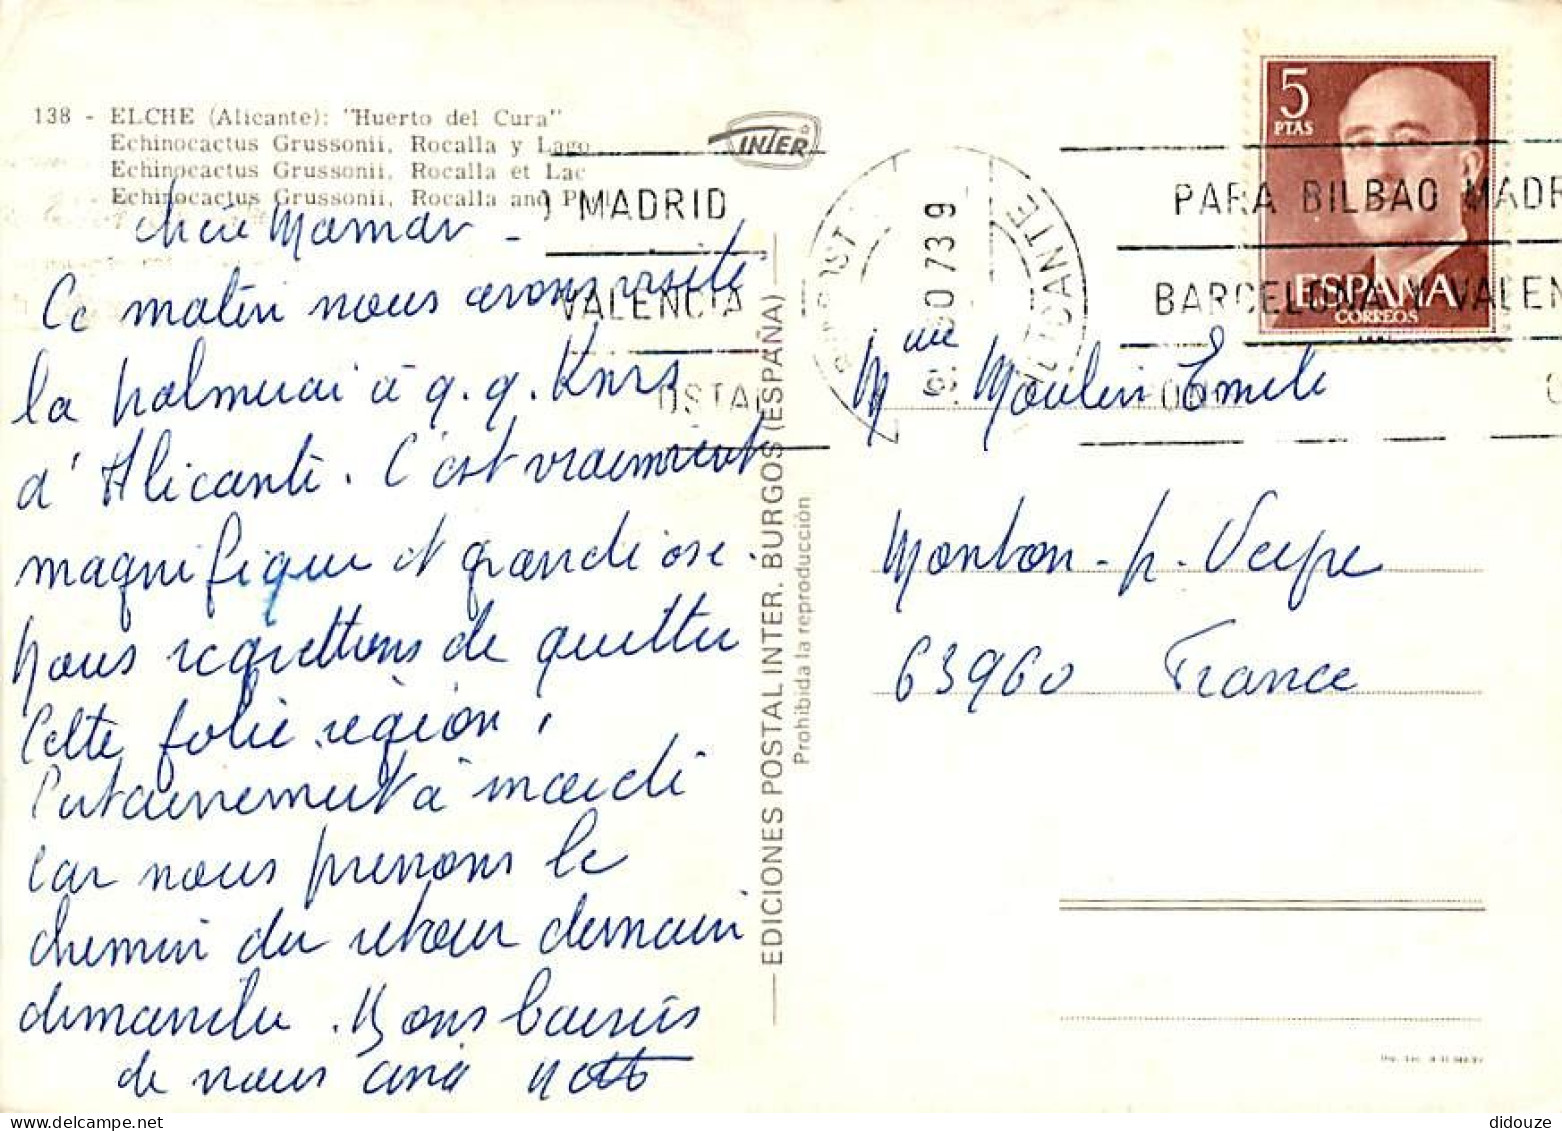 138 - ELCHE (Alicante): "Huerto del Cura"
Echinocactus Grussonii, Rocalla y Lago
Echinocactus Grussonii, Rocalla et Lac
Echinocactus Grussonii, Rocalla and
INTER
chère Maman -
Ce matin nous avons visité
la palmerai à q.q. Kms
d'Alicante. C'est vraiment
magnifique et grandiose.
Nous regrettons de quitter
Cette jolie région,
à mardi
car nous prenons le
chemin du retour demain
dimanche. Bons baisers
de nous cinq
MADRID
VALENCIA
ALICANTE
73 9
PARA BILBAO MADR
BARCELONA Y VALEN
5
PTAS
ESPAÑA
CORREOS
EDICIONES POSTAL INTER. BURGOS (ESPAÑA)
Prohibida la reproducción
Mme Moulin Emile
Monton - p. Veyre
63960 France
didouze